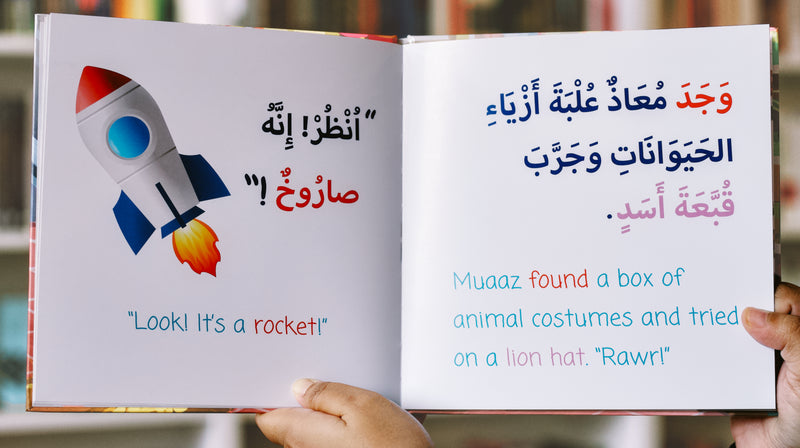 "اُنْظُرْ! إِنَّهُ
صارُوخٌ!"
"Look! It's a rocket!"
وَجَدَ مُعَاذٌ عُلْبَةَ أَزْيَاءِ
الحَيَوَانَاتِ وَجَرَّبَ
قُبَّعَةَ أَسَدٍ.
Muaaz found a box of
animal costumes and tried
on a lion hat. "Rawr!"